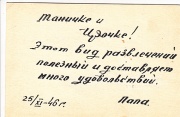 Таничке и
Цзочке!
Этот вид развлечений
полезный и доставляет
много удовольствий.
25/XI-46г. Папа.